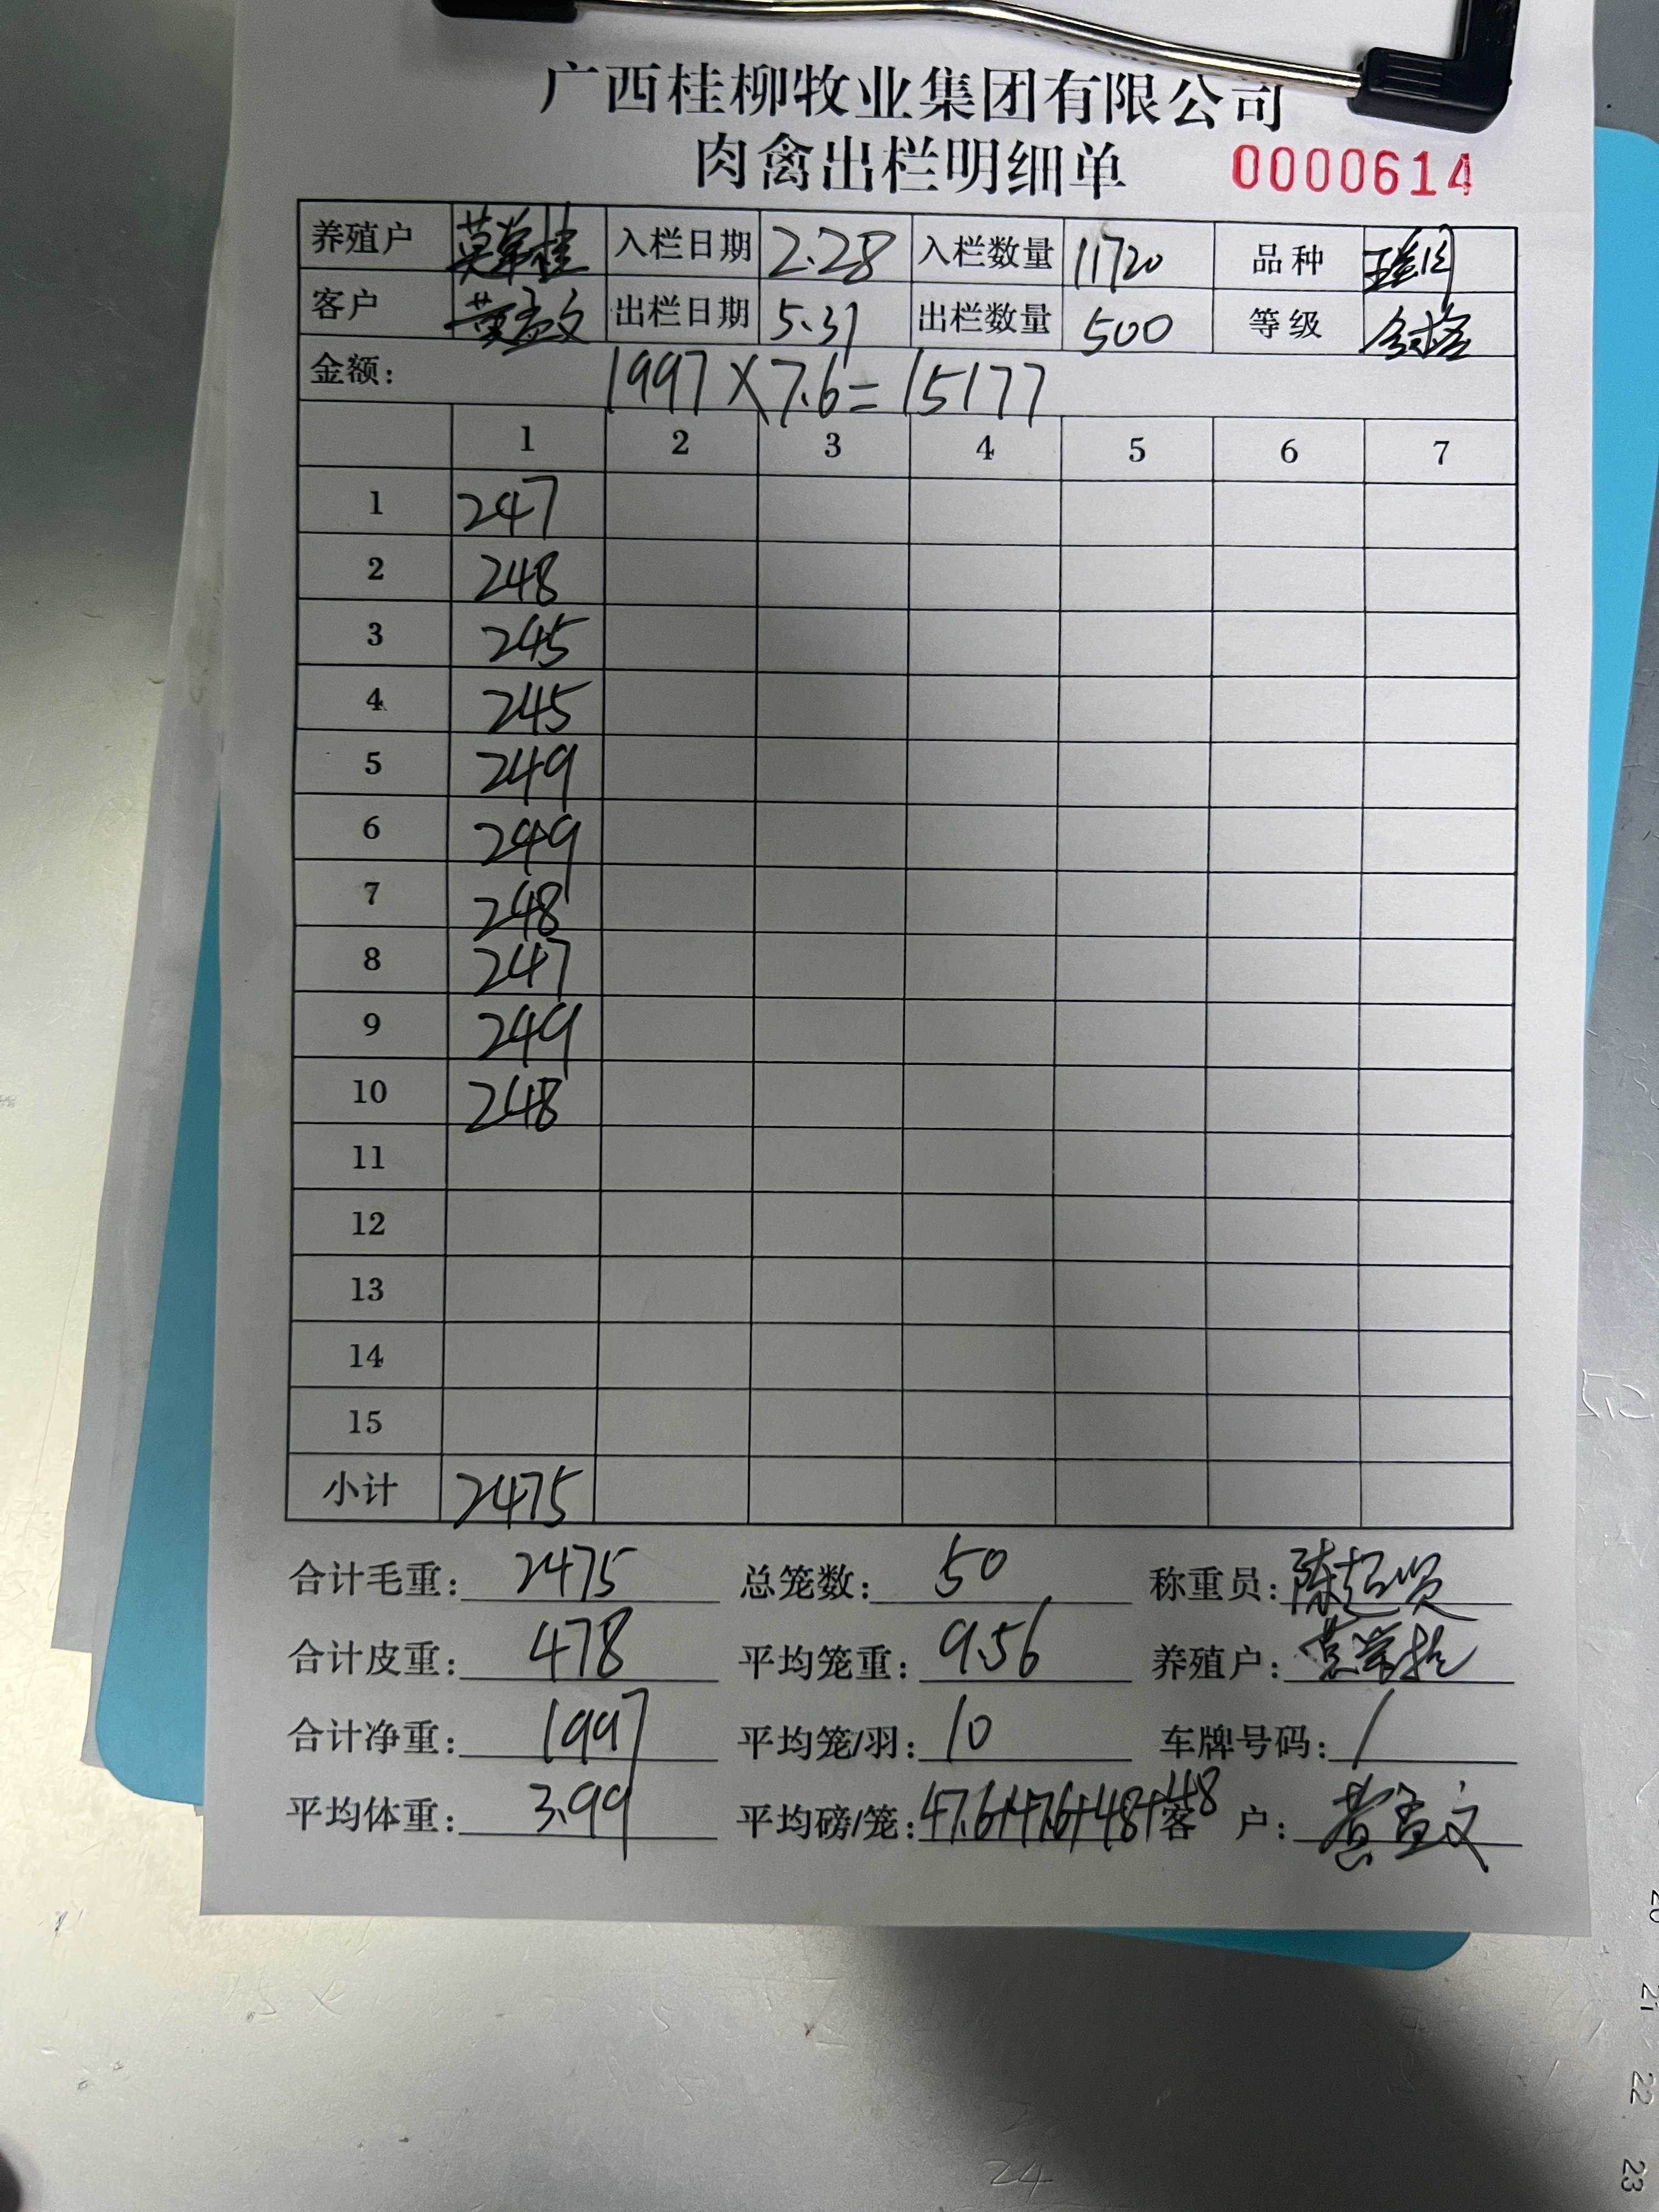 广西桂柳牧业集团有限公司
肉禽出栏明细单 0000614
养殖户 莫学桂 入栏日期 2.28 入栏数量 11720 品种
客户 黄孟文 出栏日期 5.31 出栏数量 500 等级 合格
金额: 1997×7.6=15177
1 2 3 4 5 6 7
1 247
2 248
3 245
4 245
5 249
6 249
7 248
8 247
9 249
10 248
11
12
13
14
15
小计 2475
合计毛重: 2475 总笼数: 50 称重员: 陈超贤
合计皮重: 478 平均笼重: 9.56 养殖户:
合计净重: 1997 平均笼/羽: 10 车牌号码: /
平均体重: 3.99 平均磅/笼: 47.6+47.6+48+48 客户: 黄孟文
20
21
22
23
24